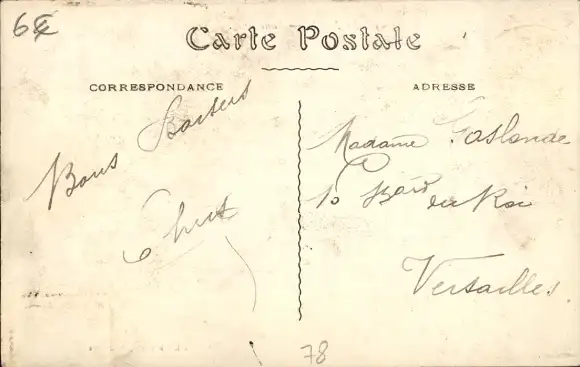 6€
Carte Postale
CORRESPONDANCE
ADRESSE
Bons Baisers
Madame
10 Bard du Roi
Versailles
78